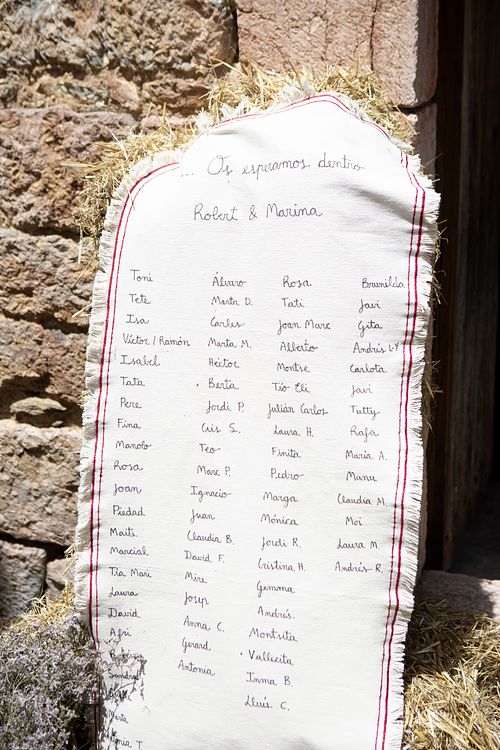 ... Os esperamos dentro
Robert & Marina
Toni
Teté
Isa
Víctor / Ramón
Isabel
Tata
Pere
Fina
Manolo
Rosa
Joan
Piedad
Maite
Marcial
Tía Mari
Laura
David
Afri
Sandra
María
Álvaro
Marta D.
Carles
Marta M.
Héctor
· Berta
Jordi P.
Cris S.
Teo
Marc P.
Ignacio
Juan
Claudia B.
David F.
Mire
Josep
Anna C.
Gerard
Antonia
Rosa
Tati
Joan Marc
Alberto
Montse
Tío Eli
Julián Carlos
Laura H.
Finita
Pedro
Marga
Mónica
Jordi R.
Cristina H.
Gemma
Andrés
Montsita
· Vallecita
Inma B
Lluís C.
Brunilda
Javi
Gita
Andrés L-Y
Carlota
Javi
Tutty
Rafa
María A.
Manu
Claudia M.
Moi
Laura M.
Andrés R.